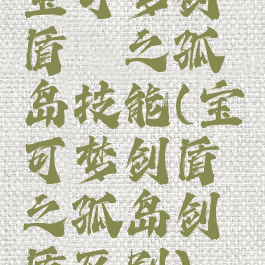 宝可梦剑
盾 之孤
岛技能(宝
可梦剑盾
之孤岛剑